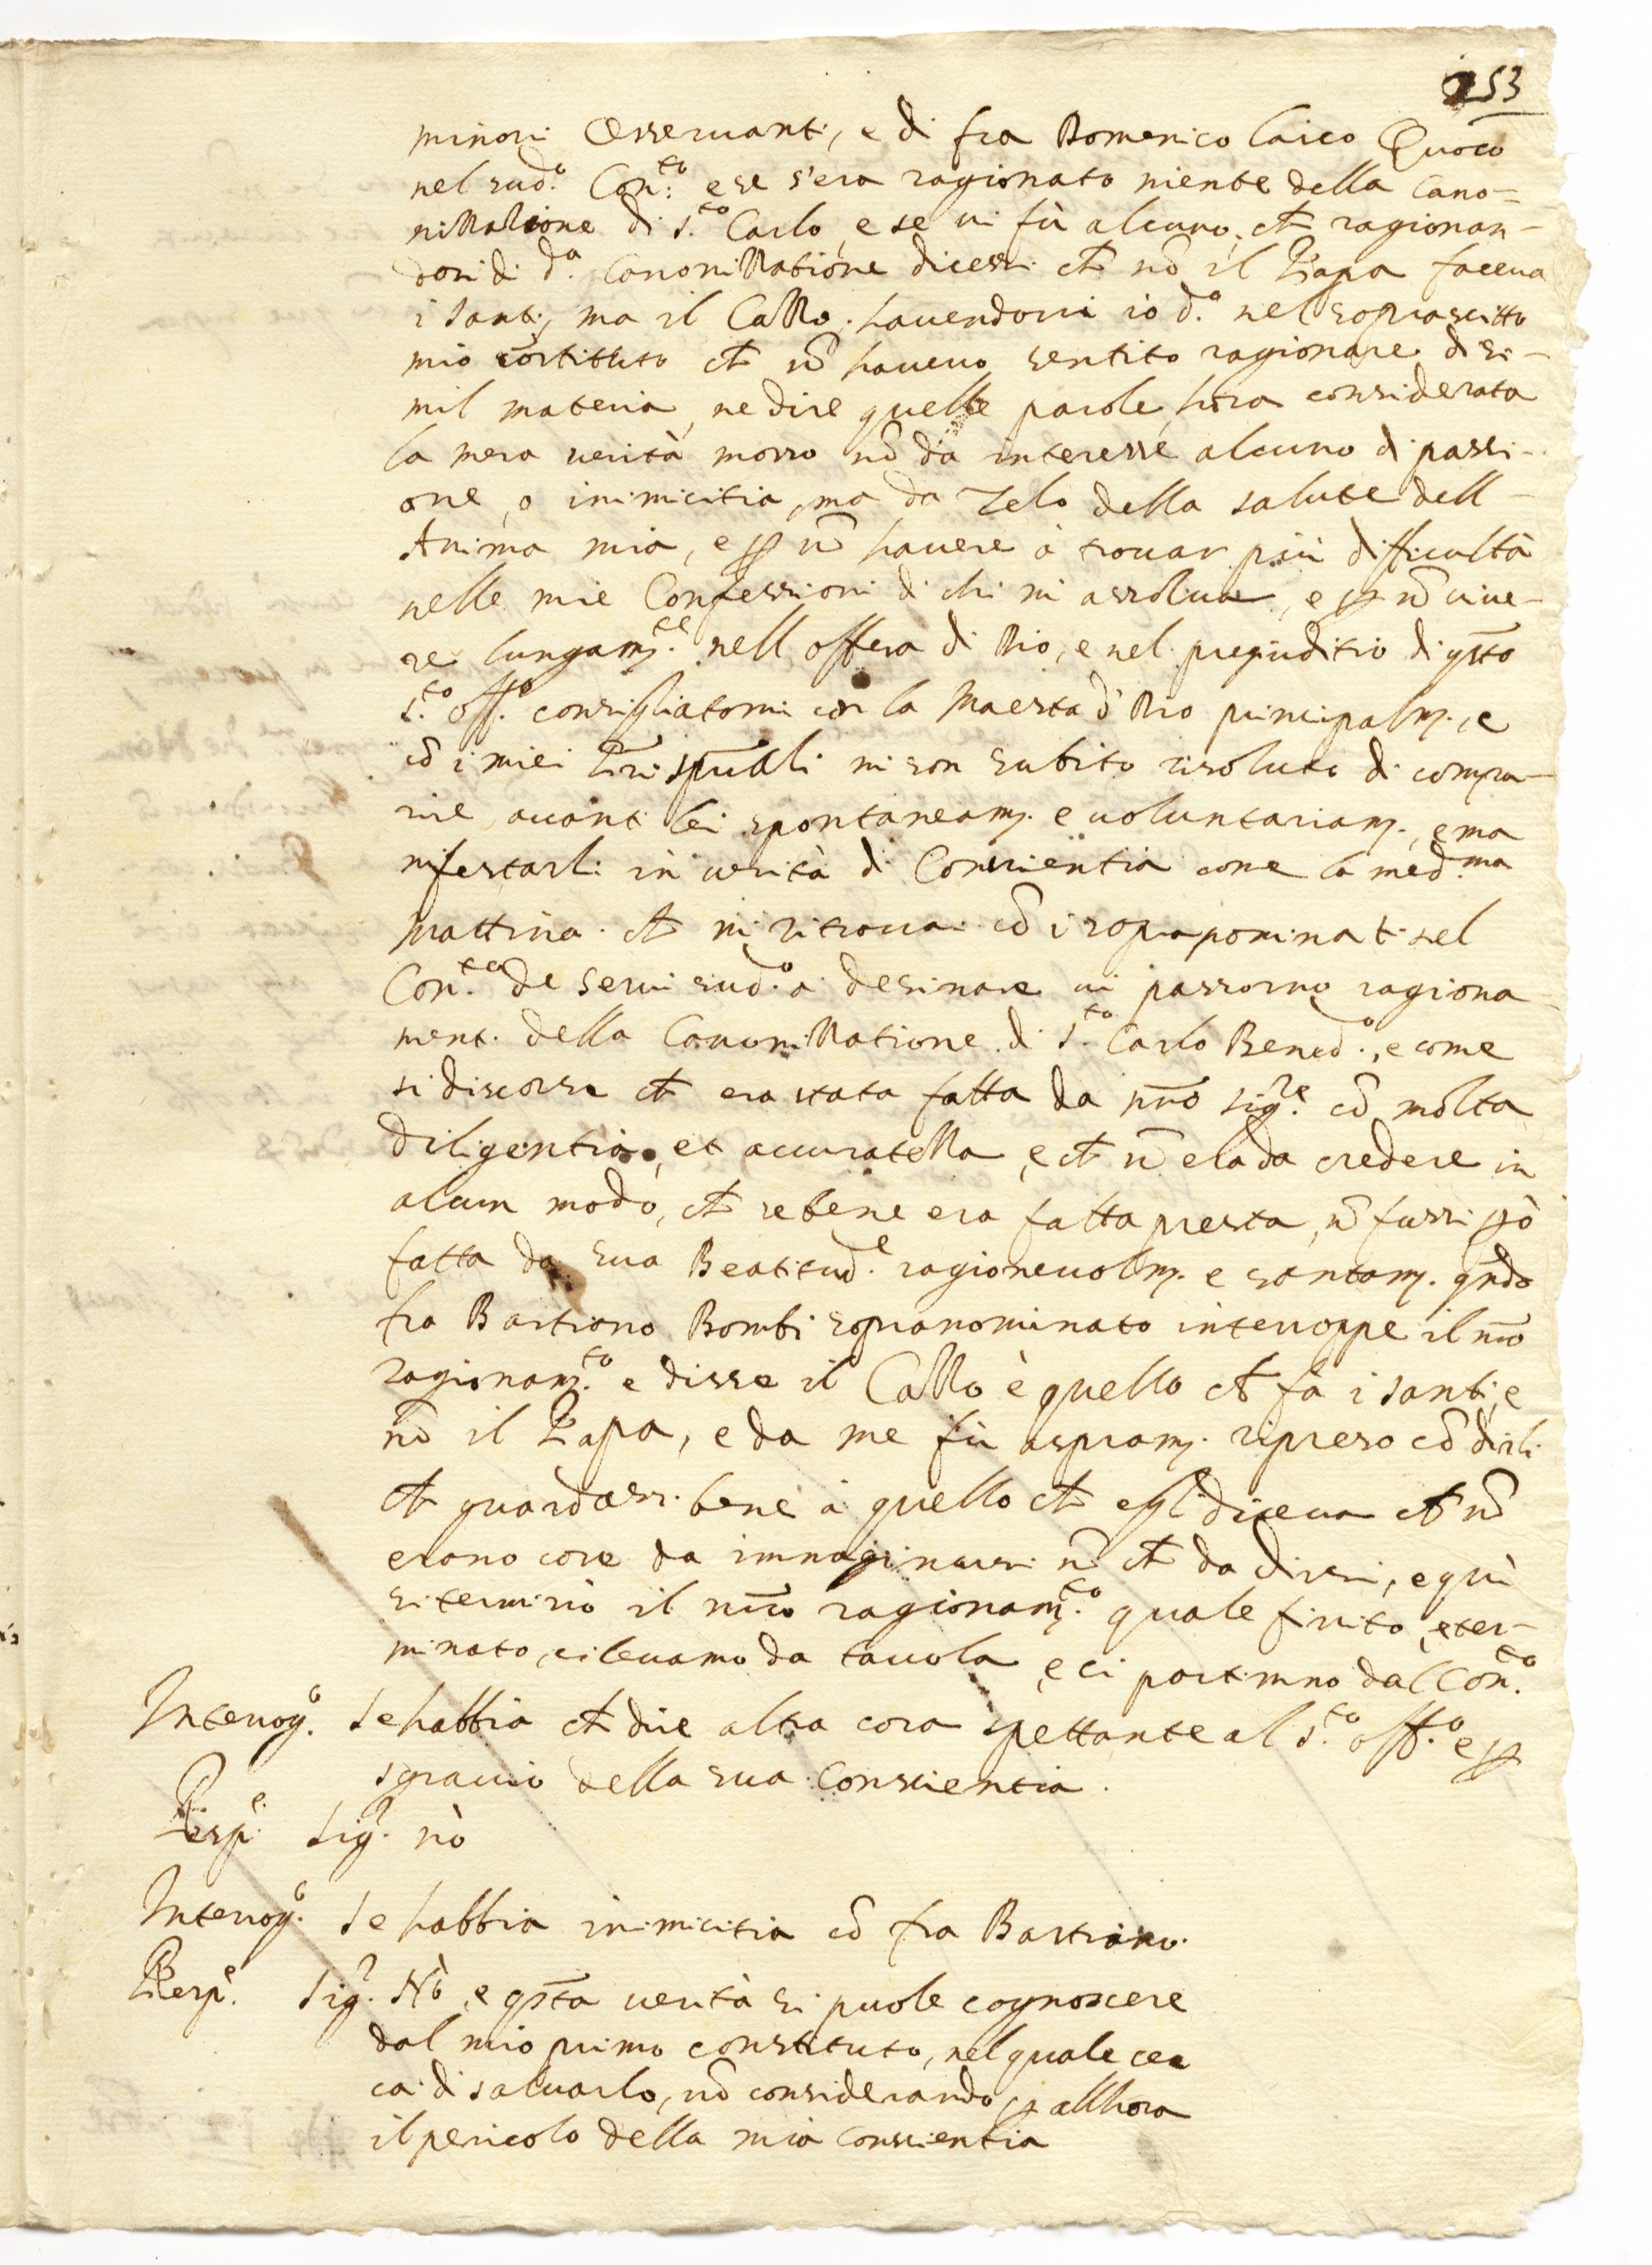 253
minori Osservanti, e di fra Domenico laico Quoco
nel sud.º Con.to e se s'era ragionato niente della Cano-
nizzazione di S.to Carlo, e se vi fù alcuno, ch ragionan-
dosi di d.a Canonizzatione dicessi ch nō il Papa faceva
i santi, ma il Cazzo, havendovi io d.º nel soprascritto
mio costituto ch nō havevo sentito ragionare di si-
mil materia, ne dire quelle parole, hora considerata
la mera verità mosso nō da interesse alcuno di passi-
one, o inimicitia, ma da zelo della salute dell-
Anima mia, e p nō havere à trovar più difficultà
nelle mie Confessioni di chi mi assolva, e p nō vive-
re lungam.te nell offesa di Dio, e nel pregiuditio di qsto
S.to Off.º consigliatomi con la Maestà d Dio principalm. e
cō i miei Pri spuali mi son subito risoluto di compa-
rire avanti lei spontaneam. e voluntariam., e ma
nifestarli in verità di Conscientia come la med.ma
Mattina ch mi ritrovai cō i sopranominati nel
Con.to de servi sud.º a desinare vi passorno ragiona-
menti della Canonizzatione di S.to Carlo Bened.º, e come
si discorse ch era stata fatta da nro Sig.re cō molta
diligentia, et accuratezza, e ch nō era da credere in
alcun modo, ch se bene era fatta presta, nō fussi pò
fatta da sua Beatitud.e ragionevolm. e santam. qndo
fra Bastiano Bombi sopranominato interroppe il nro
ragionam.to e disse il Cazzo è quello ch fà i santi, e
nō il Papa, e da me fù aspram. ripreso cō dirli
ch guardassi bene à quello ch egli diceva ch nō
erano cose da immaginarsi nō ch da dirsi, e quì
si terminò il nro ragionam.to quale finito, e ter-
minato, ci levamo da tavola, e ci partimno dal Con.to
Interrog.º Se habbia ch dire altra cosa spettante al S.to Off.º e p
sgravio della sua Conscientia.
Resp.e Sig.r nò
Interrog.º Se habbia inimicitia cō fra Bastiano.
Resp.e Sig.r Nò, e qsta verità si puole cognoscere
dal mio primo constituto, nel quale cer
cai di salvarlo, nō considerando p allhora
il pericolo della mia Conscientia